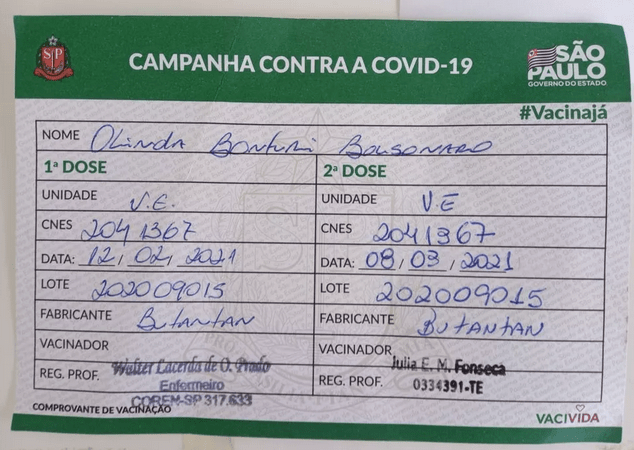 SP
CAMPANHA CONTRA A COVID-19
SÃO PAULO
GOVERNO DO ESTADO
#Vacinajá
NOME Olinda Bonturi Bolsonaro
1ª DOSE 2ª DOSE
UNIDADE V.E. UNIDADE V.E
CNES 2041367 CNES 2041367
DATA: 12/02/2021 DATA: 08/03/2021
LOTE 202009015 LOTE 202009015
FABRICANTE Butantan FABRICANTE Butantan
VACINADOR VACINADOR
Walter Lacerda de O. Prado Julia E. M. Fonseca
REG. PROF. Enfermeiro REG. PROF. 0334391-TE
COREN-SP 317.633
COMPROVANTE DE VACINAÇÃO VACIVIDA